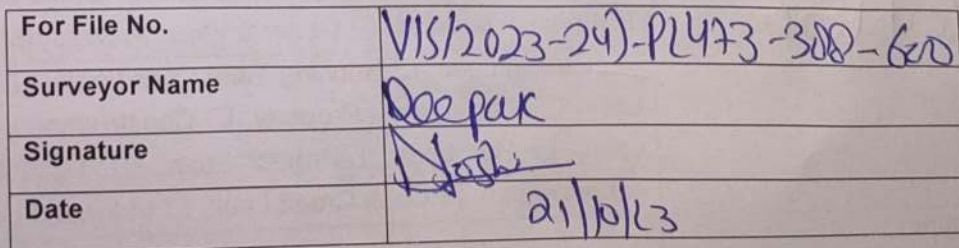 For File No. VIS/2023-24)-PL473-308-600
Surveyor Name Deepak
Signature DJoshi
Date 21/10/23